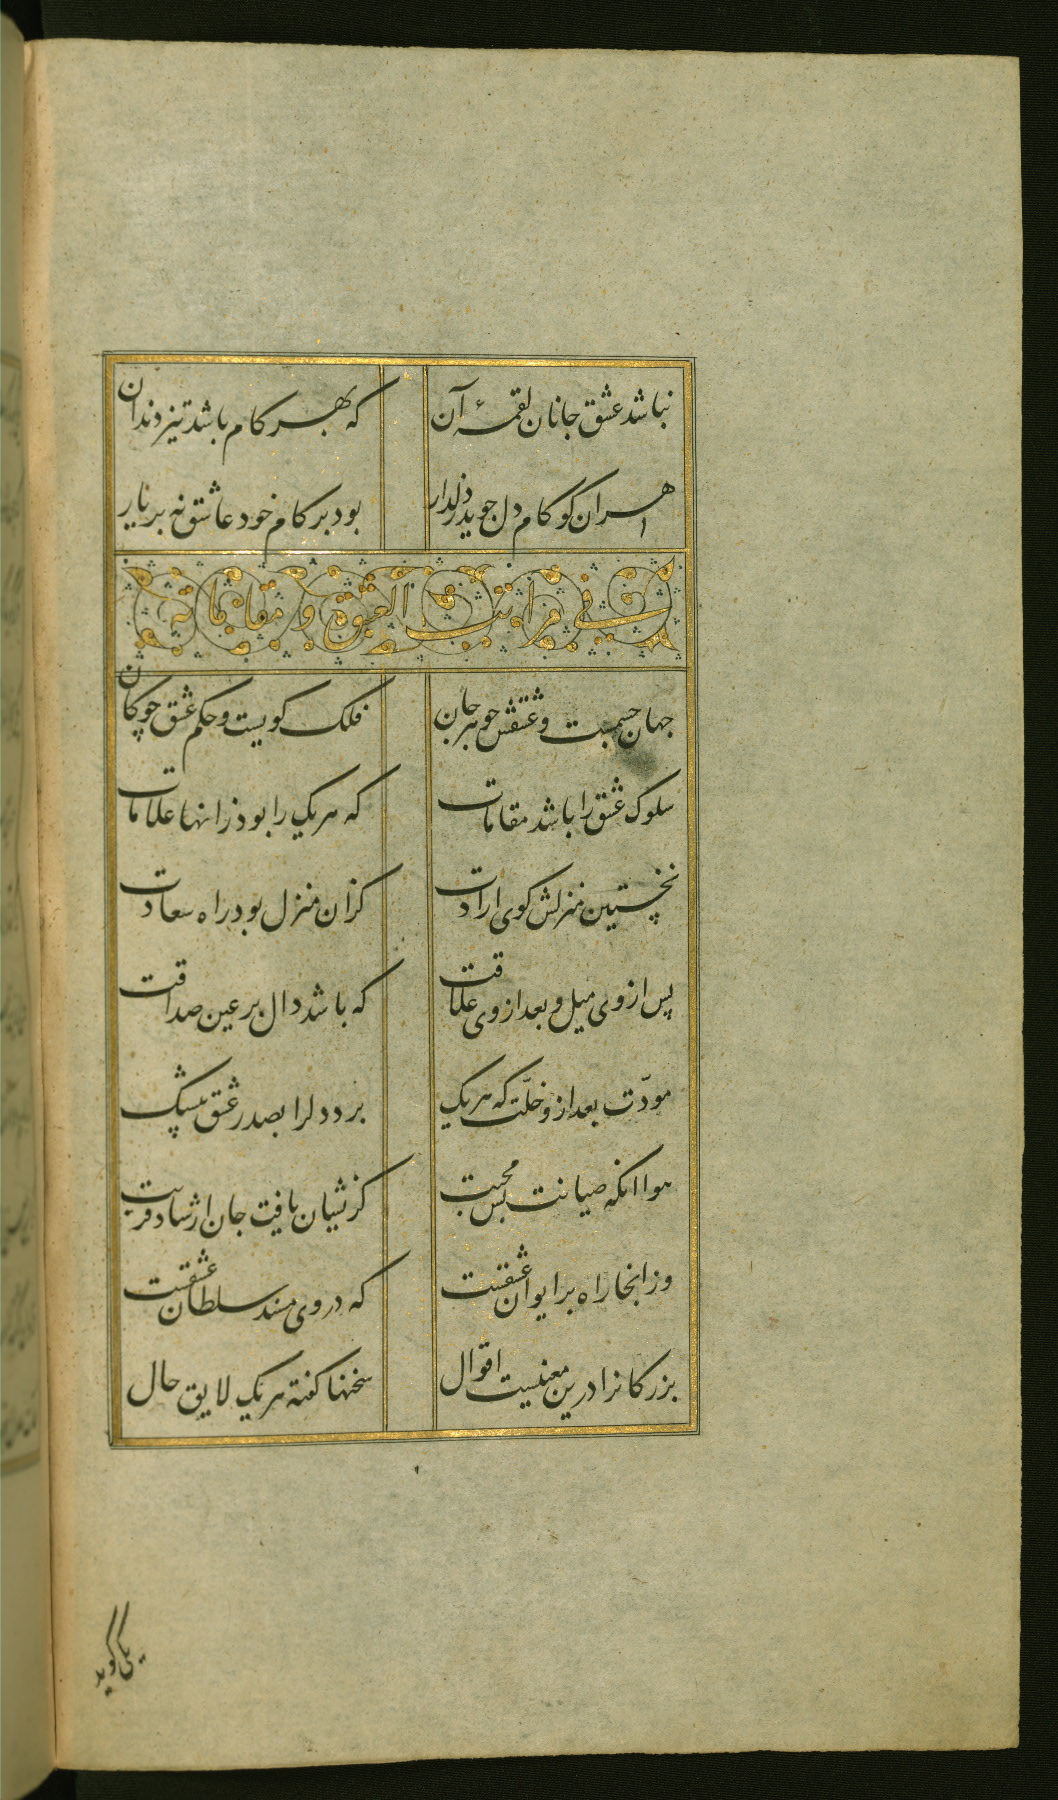 نباشد عشق جانان لقمهٔ آن که بهر کام باشد تیز دندان
هران کو کام دل جوید ز دلدار بود بر کام خود عاشق نه بر یار
فی مراتب العشق و مقاماته
جهان جسمیست و عشقش جوهر جان فلک کویست و حکم عشق چوکان
سلوک عشق را باشد مقامات که هر یک را بود زانها علامات
نخستین منزلش کوی ارادت کزان منزل بود راه سعادت
پس از وی میل و بعد از وی علاقت که باشد دال بر عین صداقت
مودّت بعد ازو خلّت که هر یک برد دلرا بصدر عشق بیشک
هوا انکه صیانت پس محبت کزیشان یافت جان ارشاد قربت
وز انجا راه بر ایوان عشقست که در وی مسند سلطان عشقست
بزرکانرا درین معنیست اقوال سخنها کفته هر یک لایق حال
یکی کوید